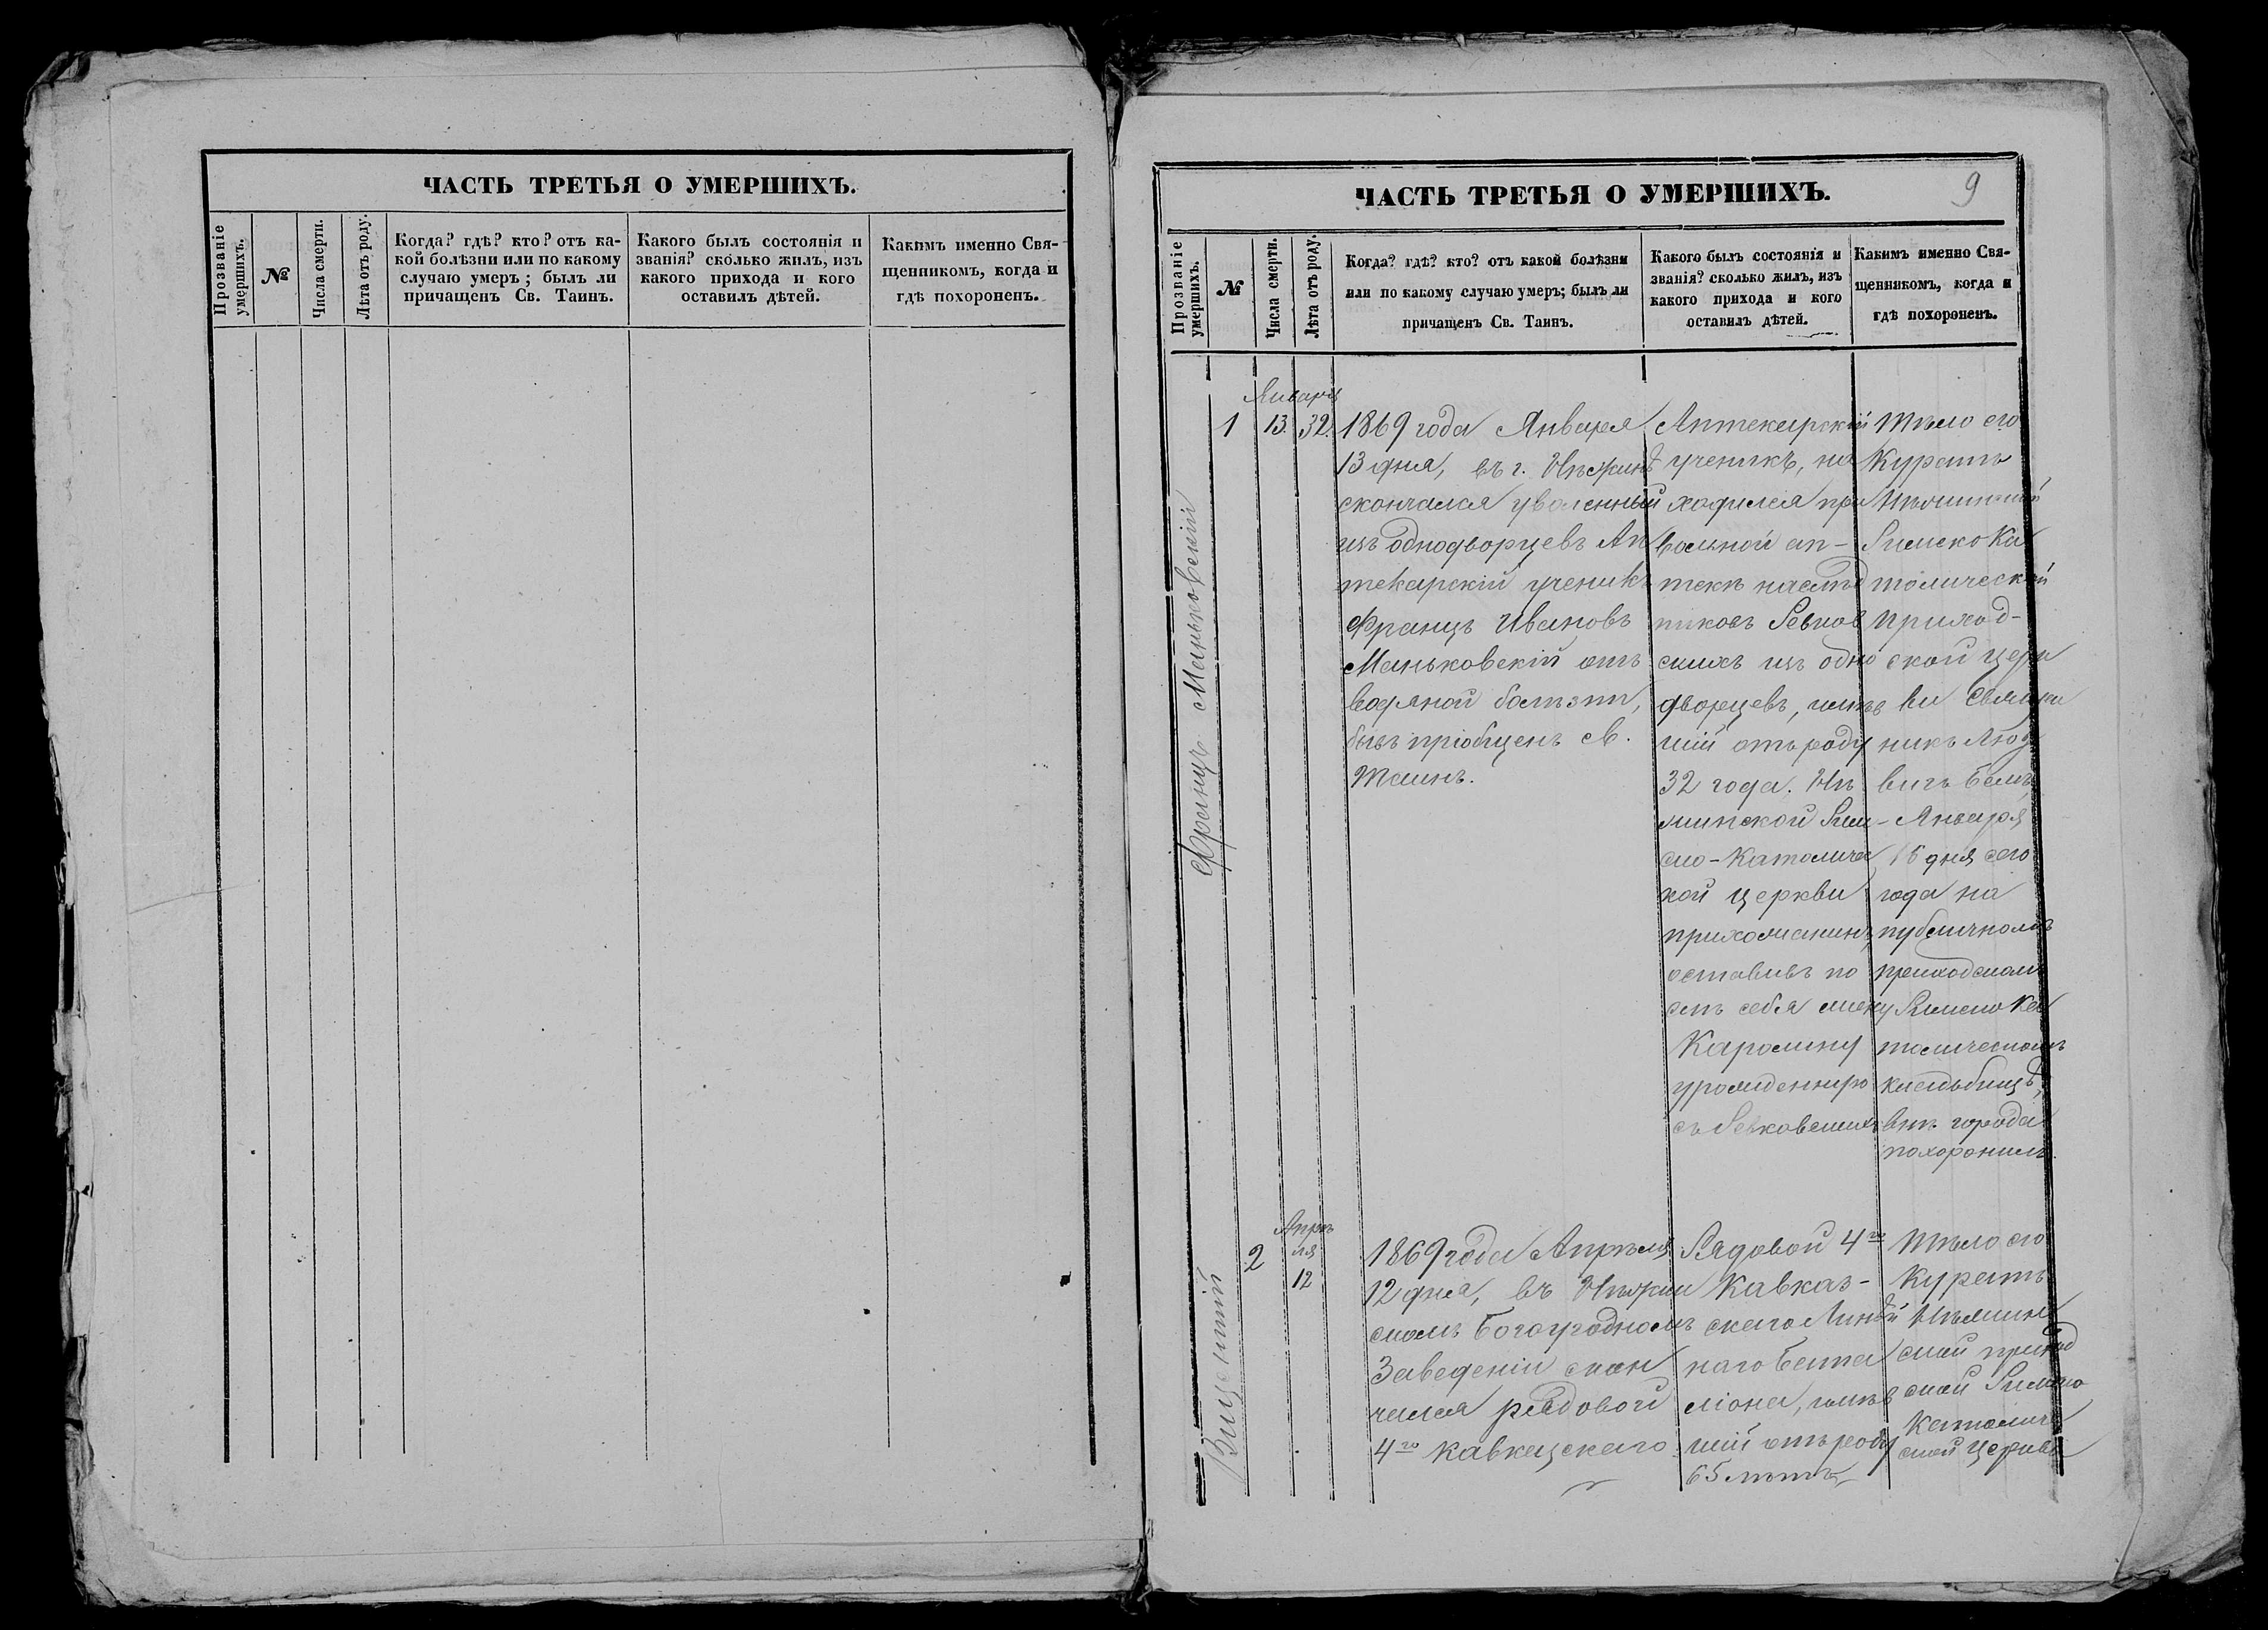 ЧАСТЬ ТРЕТЬЯ О УМЕРШИХЪ.
Прозваніе
умершихъ.
№
Числа смерти.
Лѣта отъ роду.
Когда? гдѣ? кто? отъ ка-
кой болѣзни или по какому
случаю умеръ; былъ ли
причащенъ Св. Таинъ.
Какого былъ состоянія и
званія? сколько жилъ, изъ
какого прихода и кого
оставилъ дѣтей.
Какимъ именно Свя-
щенникомъ, когда и
гдѣ похороненъ.
9
ЧАСТЬ ТРЕТЬЯ О УМЕРШИХЪ.
Прозваніе
умершихъ.
№
Числа смерти.
Лѣта отъ роду.
Когда? гдѣ? кто? отъ какой болѣзни
или по какому случаю умеръ; былъ ли
причащенъ Св. Таинъ.
Какого былъ состоянія и
званія? сколько жилъ, изъ
какого прихода и кого
оставилъ дѣтей.
Какимъ именно Свя-
щенникомъ, когда и
гдѣ похороненъ.
Францъ Маньковскій
1
Января
13.
32.
1869 года Января
13 дня, въ г. Нѣжинѣ
скончался уволенный
изъ однодворцевъ Ап
текарскій ученикъ
Францъ Ивановъ
Маньковскій отъ
водяной болѣзни,
бывъ пріобщенъ Св.
Таинъ.
Аптекарскій
ученикъ, на
ходился при
вольной ап-
текѣ наслѣд
никовъ
скихъ изъ одно
дворцевъ, имѣв
шій отъ роду
32 года. Нѣ
жинской Рим-
ско-Католичес
кой церкви
прихожанинъ,
оставивъ по
слѣ себя жену
Каролину
урожденную
съ
Тѣло его
Куратъ
Нѣжинской
Римско Ка
толической
приход-
ской церк
ви Священ
никъ Люд
вигъ
Января
15 дня сего
года на
публичномъ
приходскомъ
Римско Ка
толическомъ
кладбищѣ,
внѣ города
похоронилъ.
2
Апрѣ
ля
12
1869 года Апрѣля
12 дня, въ Нѣжин
скомъ Богоугодномъ
Заведеніи скон
чался рядовой
4го Кавказскаго
Рядовой 4го
Кавказ-
скаго Линѣй
наго Бата
ліона, имѣв
шій отъ роду
65 лѣтъ,
Тѣло его
Куратъ
Нѣжинс
кой приход
ской Римско
Католиче
ской Церкви